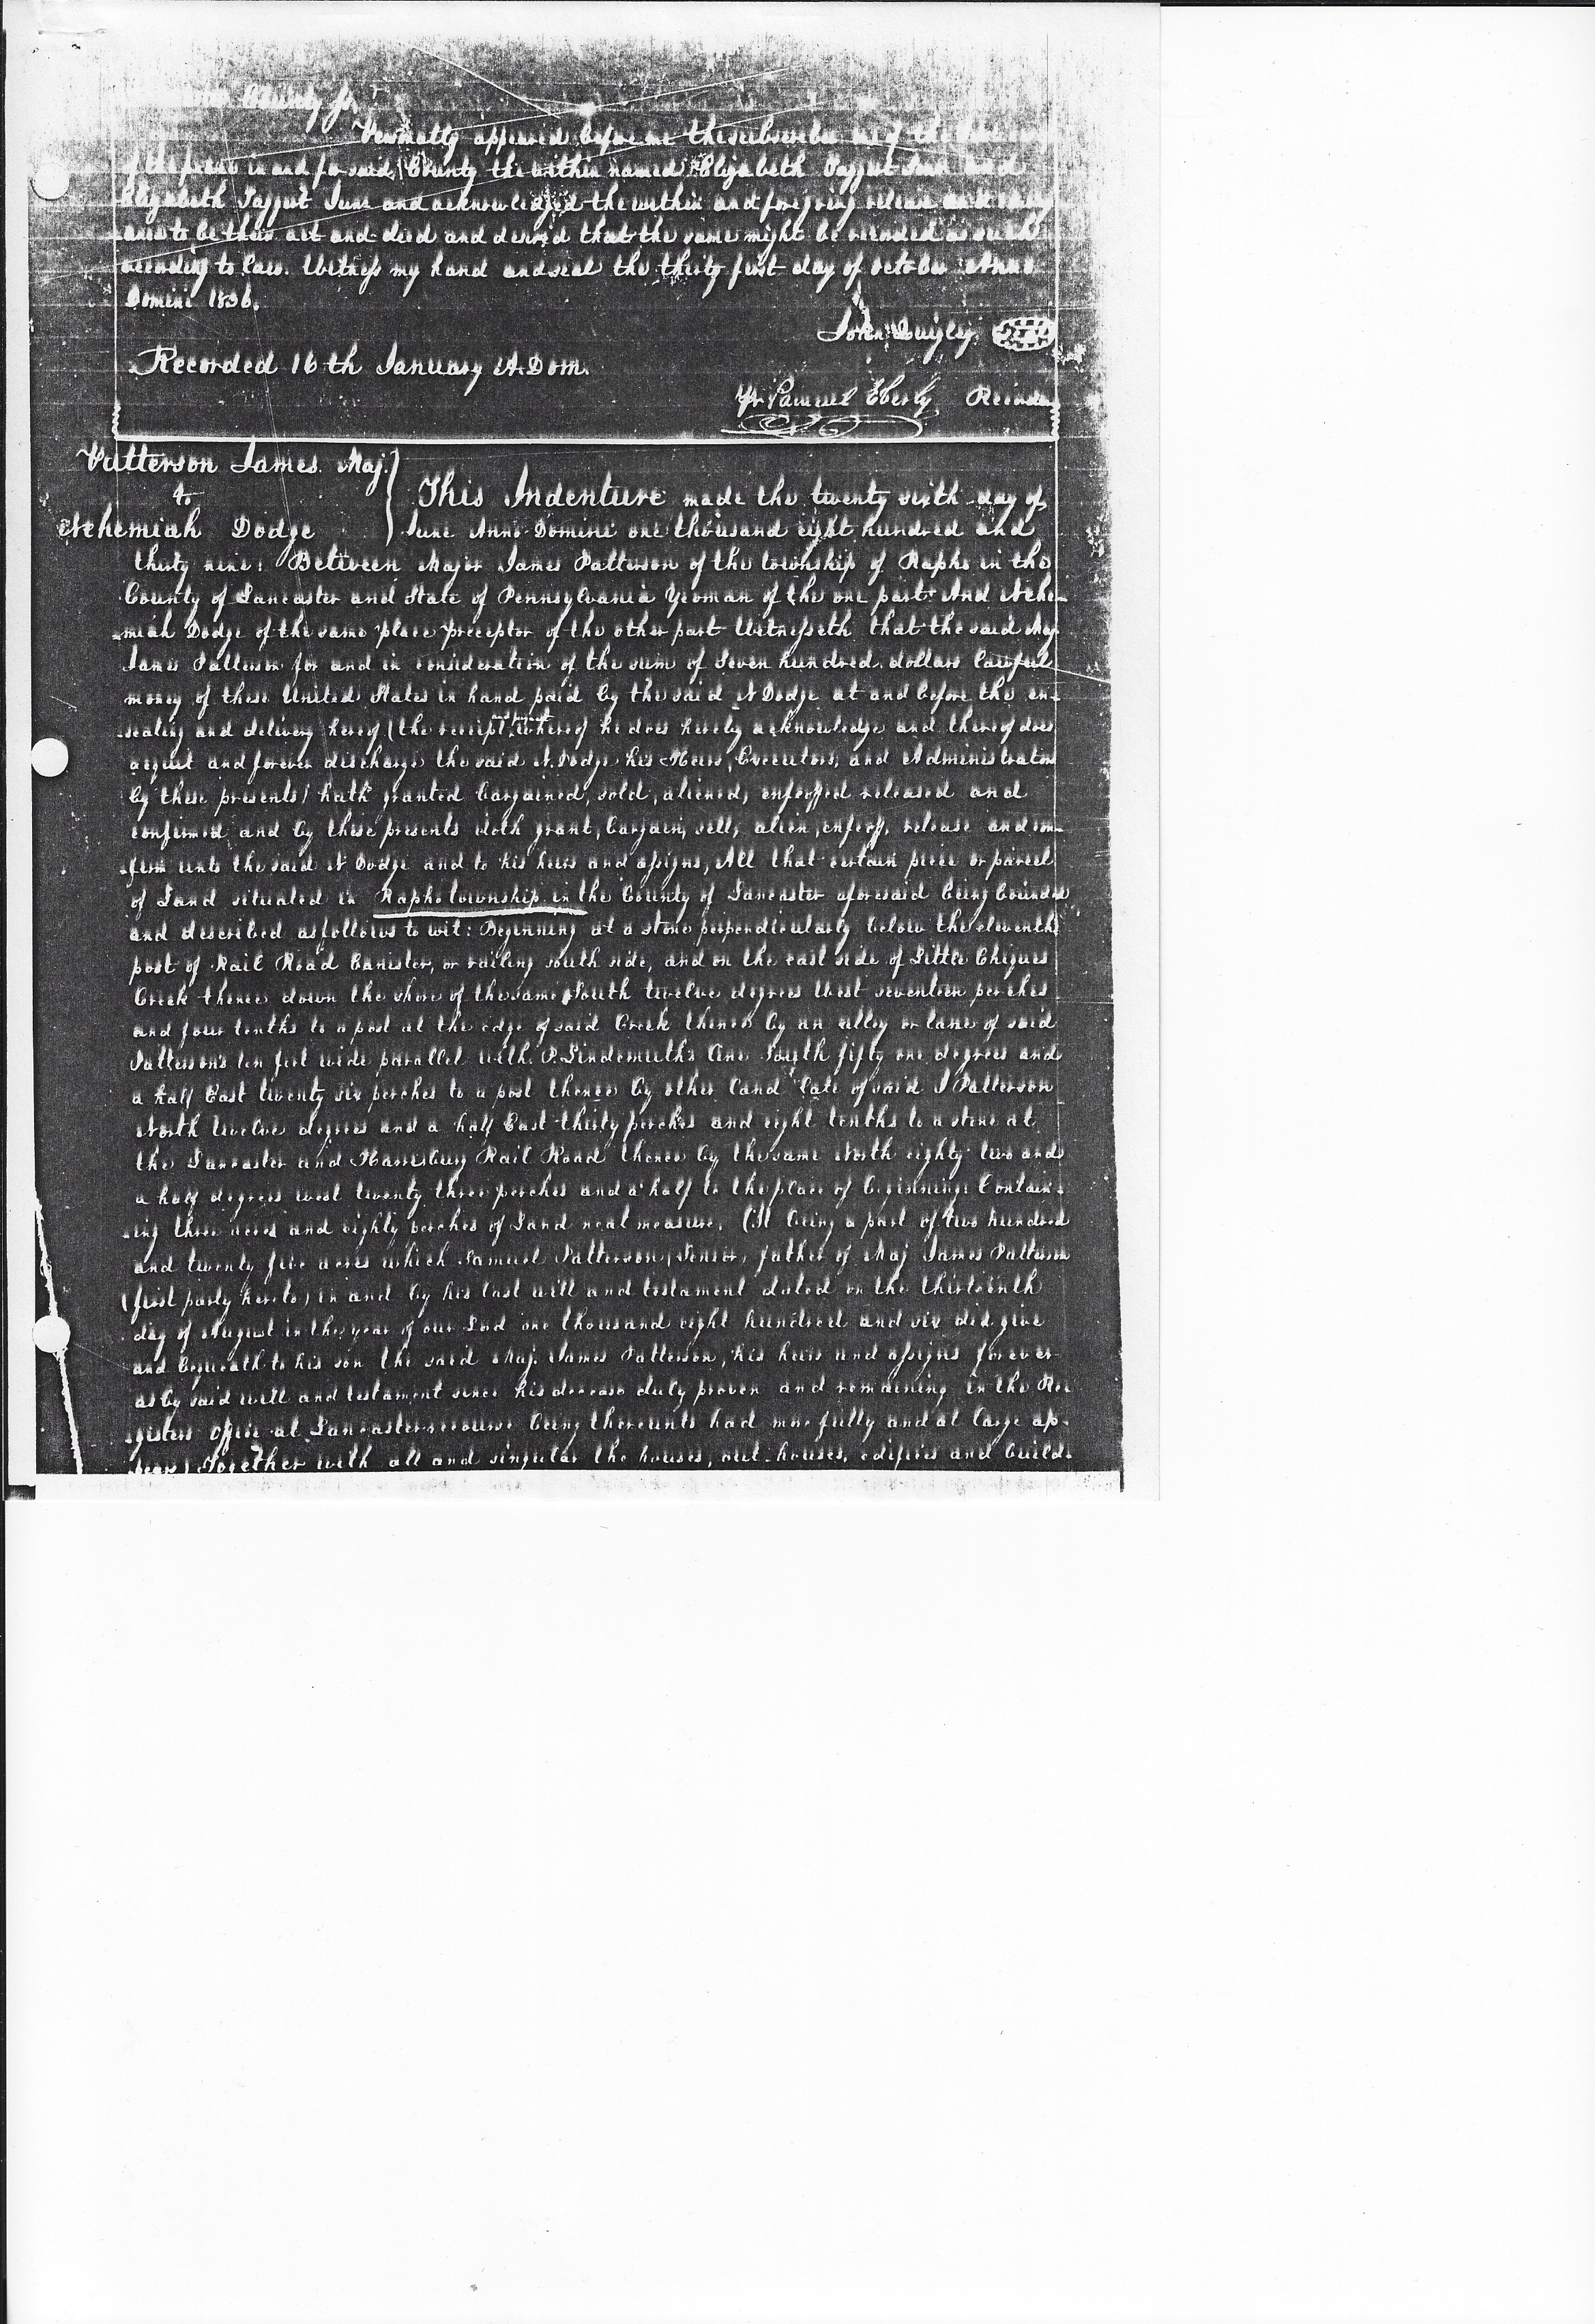 County ss.
Personally appeared before me the subscriber one of the
of the peace in and for said County the within named Elizabeth Taggert Senr and
Elizabeth Taggert Junr and acknowledged the within and foregoing release
to be their act and deed and desired that the same might be recorded as such
according to law. Witness my hand and seal the thirty first day of October Anno
Domini 1836.
John
Recorded 16th January A. Dom.
Pr Samuel Eberly Recorder
Patterson James Maj.
to
Nehemiah Dodge
This Indenture made the twenty sixth day of
June Anno Domini one thousand eight hundred and
thirty nine: Between Major James Patterson of the township of Rapho in the
County of Lancaster and State of Pennsylvania Yeoman of the one part And Nehe-
miah Dodge of the same place preceptor of the other part Witnesseth that the said Maj.
James Patterson for and in consideration of the sum of Seven hundred dollars lawful
money of these United States in hand paid by the said N Dodge at and before the en-
sealing and delivery hereof (the receipt and payment whereof he does hereby acknowledge and thereof does
acquit and forever discharge the said N. Dodge his Heirs, Executors, and Administrators
by these presents) hath granted bargained, sold, aliened, enfeoffed released and
confirmed and by these presents doth grant, bargain, sell, alien, enfeoff, release and con-
firm unto the said N Dodge and to his heirs and assigns, All that certain piece or parcel
of Land situated in Rapho township in the County of Lancaster aforesaid being bounded
and described as follows to wit: Beginning at a stone perpendicularly below the eleventh
post of Rail Road Canister, or railing south side, and on the east side of Little Chiques
Creek thence down the shore of the same South twelve degrees West seventeen perches
and four tenths to a post at the edge of said Creek thence by an alley or lane of said
Pattersons ten feet wide parallel with P. Lindemuth's line South fifty one degrees and
a half East twenty six perches to a post thence by other land late of said J Patterson
North twelve degrees and a half East thirty perches and eight tenths to a stone at
the Lancaster and Harrisburg Rail Road thence by the same North eighty two and
a half degrees west twenty three perches and a half to the place of beginning: Contain-
ing three acres and eighty perches of Land neat measure. (It being a part of two hundred
and twenty five acres which Samuel Patterson, Senior, father of Maj James Patterson
(first party hereto) in and by his last will and testament dated on the thirteenth
day of August in the year of our Lord one thousand eight hundred and six did give
and bequeath to his son the said Maj. James Patterson, his heirs and assigns forever
as by said will and testament since his decease duly proven and remaining in the Re-
gisters office at Lancaster recourse being thereunto had more fully and at large ap-
pear) Together with all and singular the houses, out-houses, edifices and build-